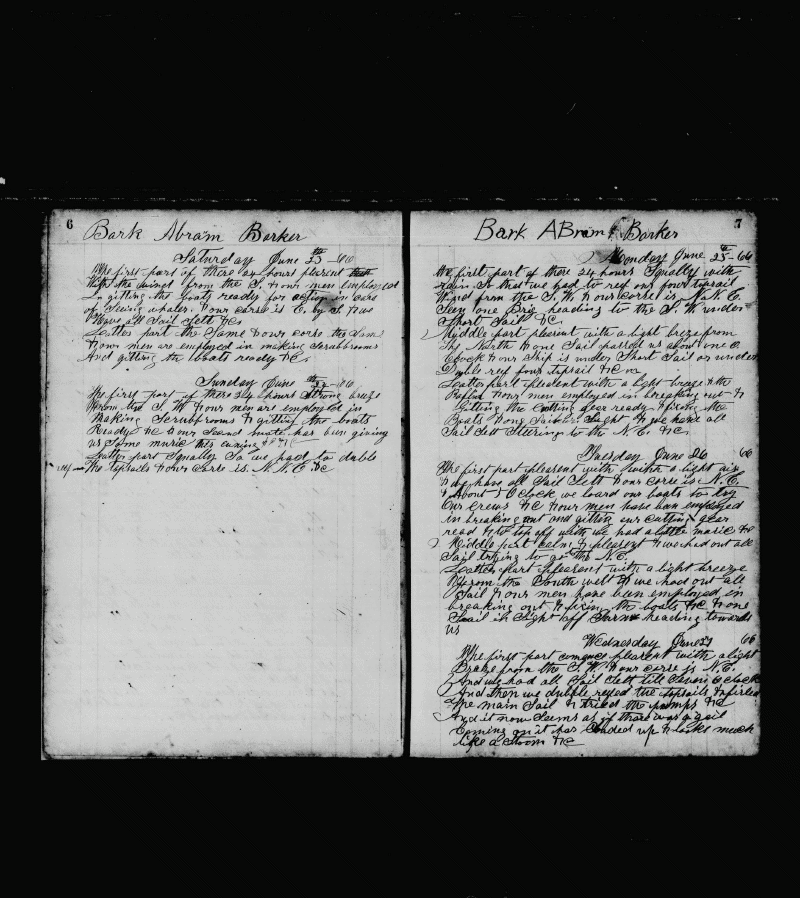 6
Bark Abram Barker
Saturday June 23th - 66
The first part of these 24 hours plesent
With the winds from the S. & our men employed
In gitting the boats ready for action in case
of Seeing whales. & our corse is E. by S. & we
Have all Sail Sett &c
Latter part the Same & our corse the Same
& our men are employed in making Scrubbrooms
And gitting the boats ready &c.
Sunday June 24th - 66
The first part of these 24 hours Strong breze
From the S. W. & our men are employed in
Making Scrubbrooms & gitting the boats
Ready &c & our Second mate has ben giving
us Some music this evning &c
Latter part Squally So we had to duble
reef the topsails & our corse is N. N. E. &c
7
Bark ABram Barker
Monday June 25th - 66
the first part of these 24 hours Squally with
rain So that we had to ref our four topsail
Wind from the S. W. & our corse is N. N. E.
Seen one Brig heading to the S. W. under
Short Sail &c
Middle part plesent with a light breze from
The North & one Sail passed us about one O
Clock & our Ship is under Short Sail or under
Duble reef four topsail &c
Latter part plesent with a light breze &
our men employed in breaking out &
Gitting the Cutting gear ready & fixing the
Boats & one Sail in Sight & we have all
Sail Sett Steering to the N. E. &c.
Tuesday June 26 66
The first part plesent with with a light air
& we have all Sail Sett & our corse is N. E.
& About 7 O Clock we loard our boats to try
Our Crews &c & our men have ban employed
in breaking out and gitting our cutting gear
read & to top off with we had a little music &c
Middle part calm & plesent & we had out all
Sail trying to go the N. E.
Latter part plesent with a light breeze
From the South west & we had out all
Sail & our men have been employed in
breaking out & fixing the boats &c & one
Sail in Sight off Starn heading towards
us
Wednesday June 27 66
The first part comences plesent with a light
Breze from the S. W. & our corse is N. E.
And we had all Sail Sett till Seven O clock
And then we dubble refed the topsails & firled
The main Sail & tried the pumps &c
And it now Seems as if there was a gail
Coming on it has Clouded up & looks much
like a Storm &c